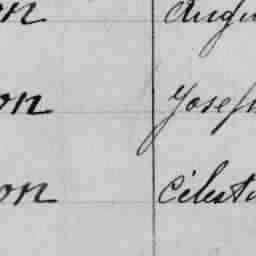 on Augu
on Josep
on Célest